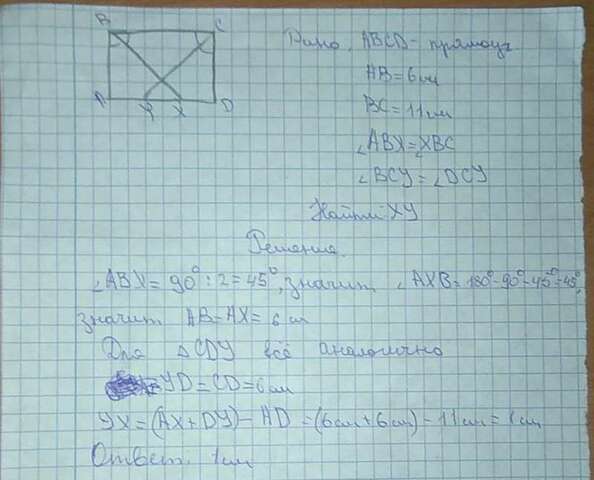 B C
A Y X D
Дано: ABCD - прямоуг.
AB = 6 см
BC = 11 см
∠ABX = ∠XBC
∠BCY = ∠DCY
Найти: XY
Решение.
∠ABX = 90° : 2 = 45°, значит ∠AXB = 180° - 90° - 45° = 45°,
значит AB = AX = 6 см
Для △CDY всё аналогично
YD = CD = 6 см
YX = (AX + DY) - AD = (6 см + 6 см) - 11 см = 1 см
Ответ: 1 см